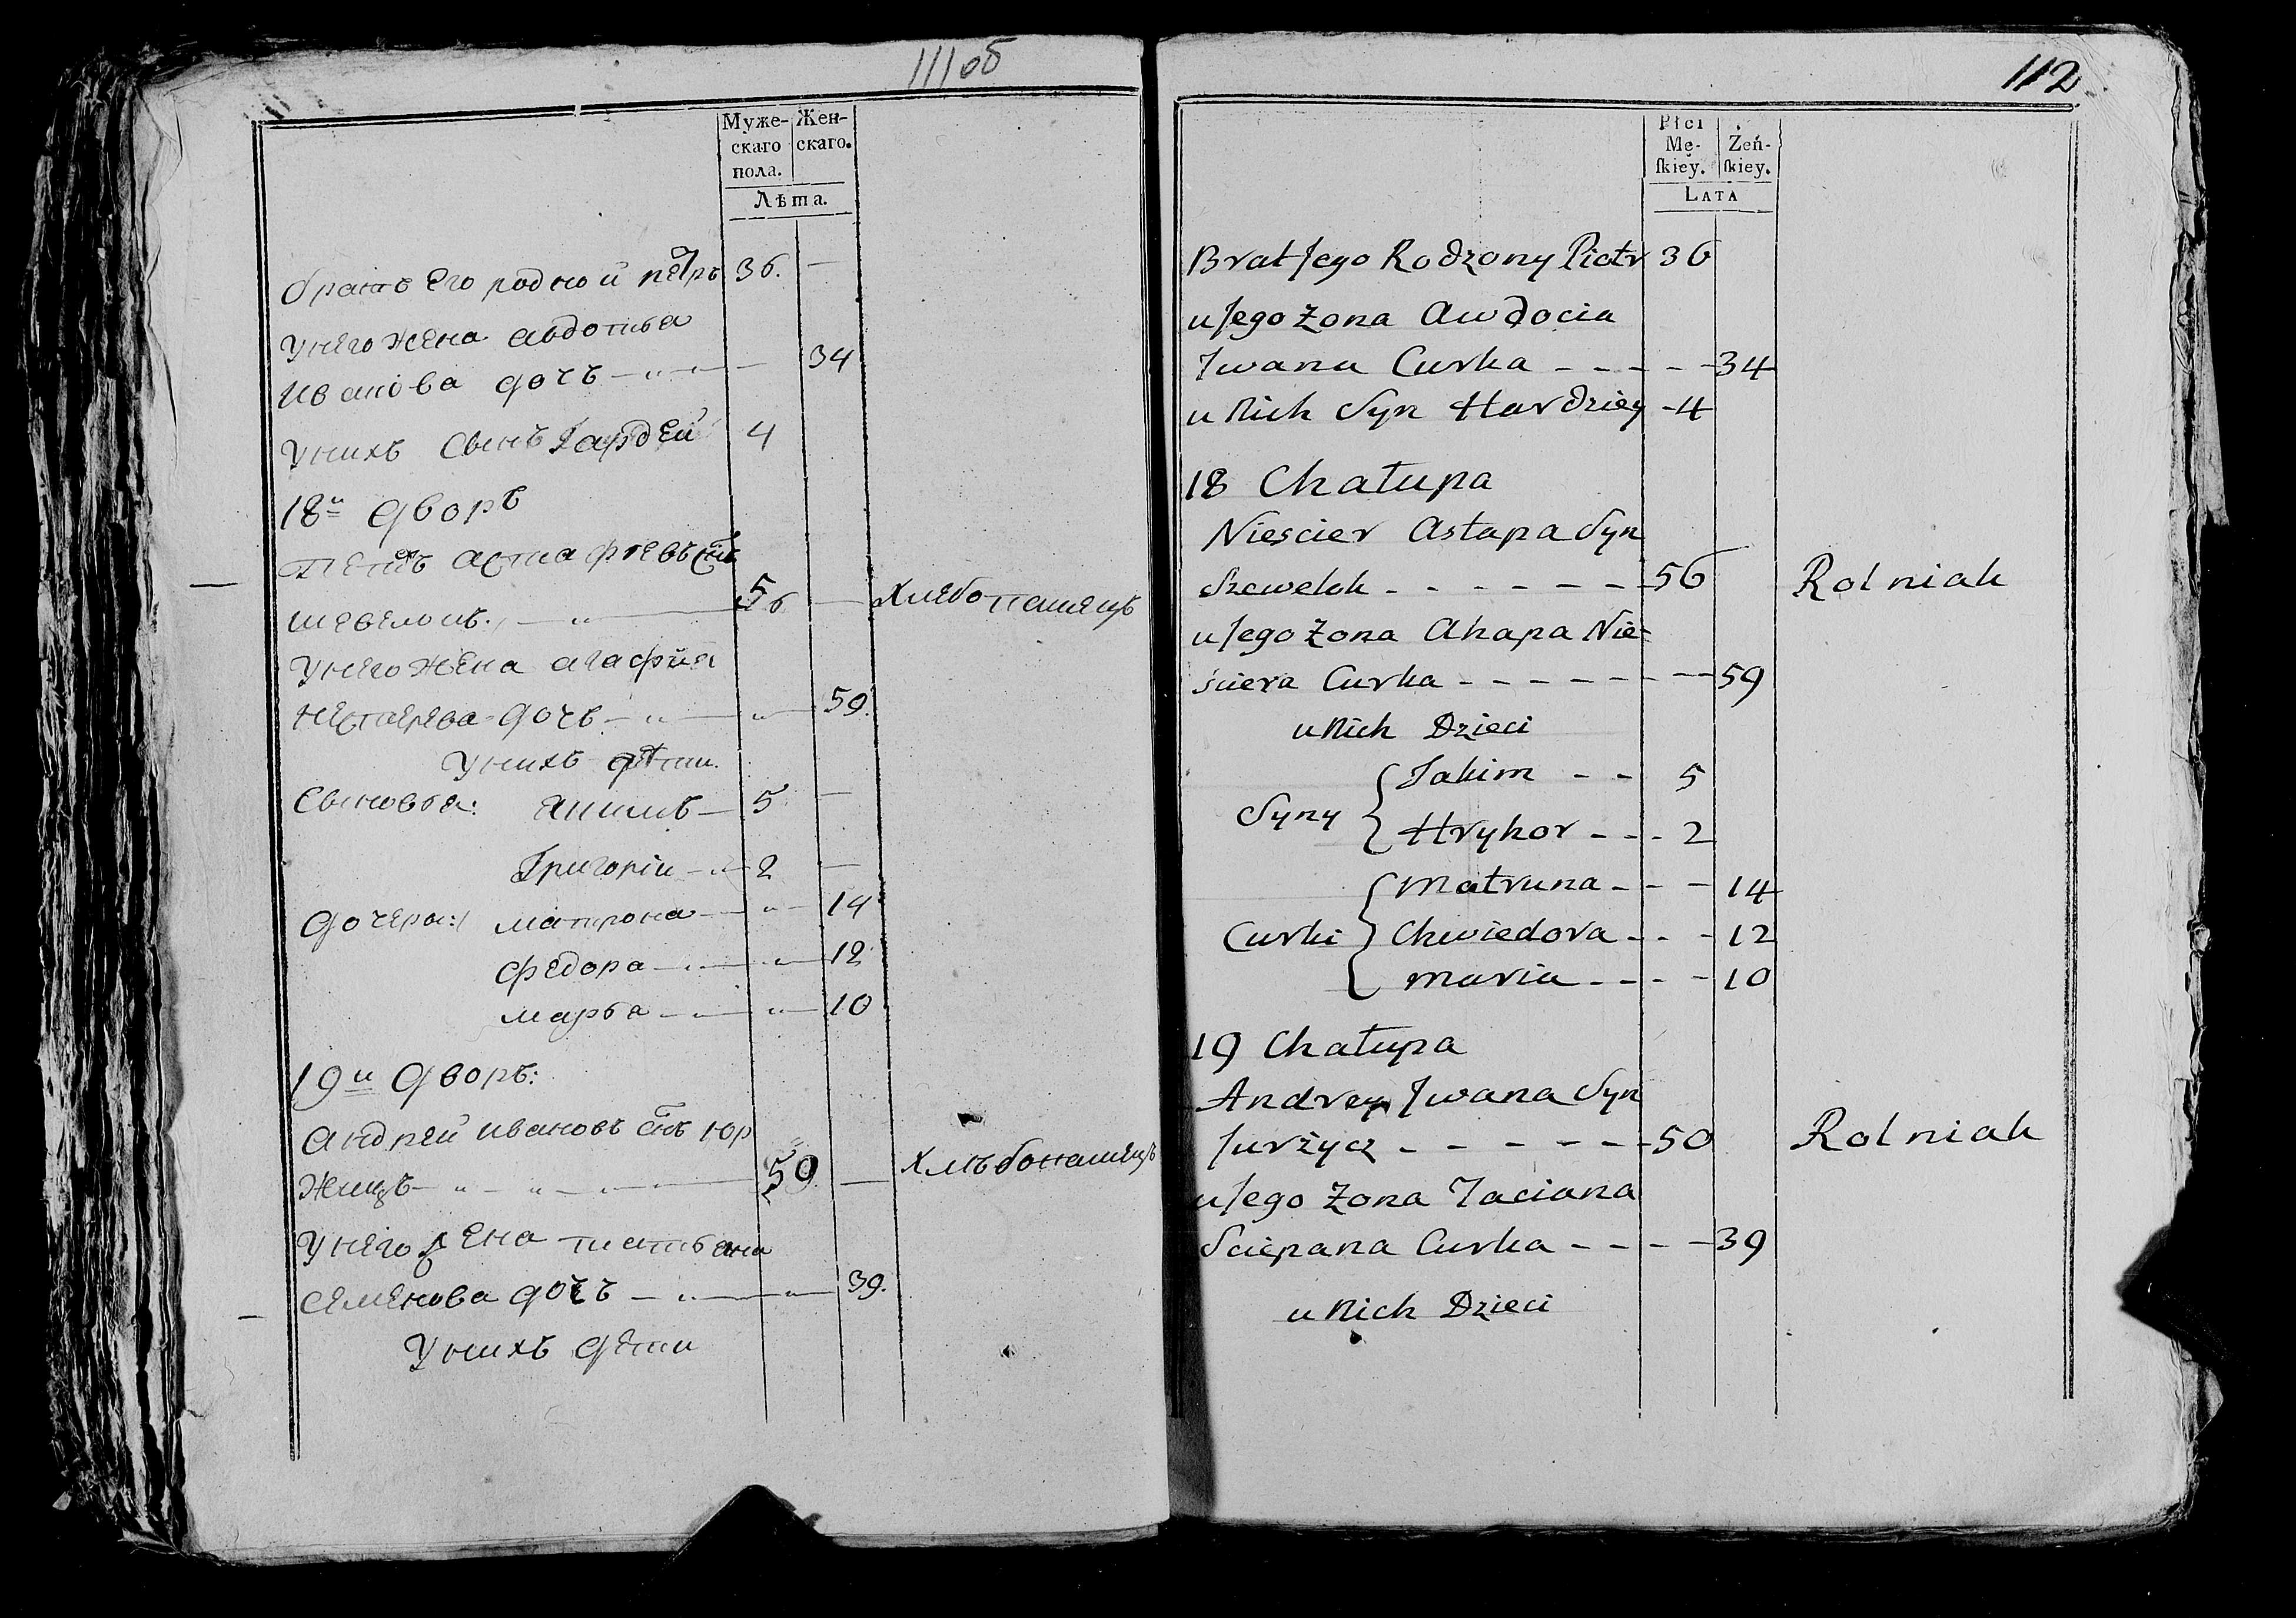 111об
Муже-
скаго
пола.
Жен-
скаго.
Лѣта.
братъ Его родной пѣтръ 36.
Унего жена авдотьа
иванова дочь 34
Унихъ сынъ Гардѣй 4
18й дворъ
астафѣевъ сынъ
шевелокъ 56 Хлебопашецъ
Унего жена агафия
нестерева дочь 59.
Унихъ дѣти.
Сыновья: якимъ 5
Григоріи 2
дочеры: матрона 14
федора 12
марья 10
19й дворъ:
андрей ивановъ сынъ юр
жицъ 59. Хлѣбопашецъ
Унего жена татьяна
семенова дочь 39.
Унихъ дети
112
Płci
Mę-
ſkiey.
Żeń-
ſkiey.
LATA
Brat Jego Rodzony Piotr 36
u Jego Żona Awdocia
Jwana Curka - - - - - 34
u Nich Syn Hardziey - 4
18 Chałupa
Niescier Astapa Syn
Szewelok - - - - - - - 56 Rolniak
u Jego Żona Ahapa Nie-
ściera Curka - - - - - - - - 59
u Nich Dzieci
Syny { Jakim - - 5
Hryhor - - - 2
Curki { Matruna - - - 14
Chwiedora - - - 12
Maria - - - - 10
19 Chałupa
Andrey Jwana Syn
Jurżycz - - - - - - 50 Rolniak
u Jego Żona Taciana
Sciepana Curka - - - - 39
u Nich Dzieci